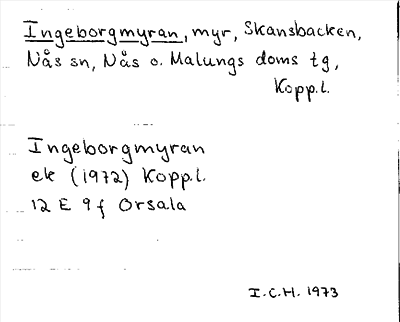 Ingeborgmyran, myr, Skansbacken,
Nås sn, Nås o. Malungs doms tg,
Kopp.l.
Ingeborgmyran
ek (1972) Kopp.l.
12 E 9 f Orsala
I.C.H. 1973